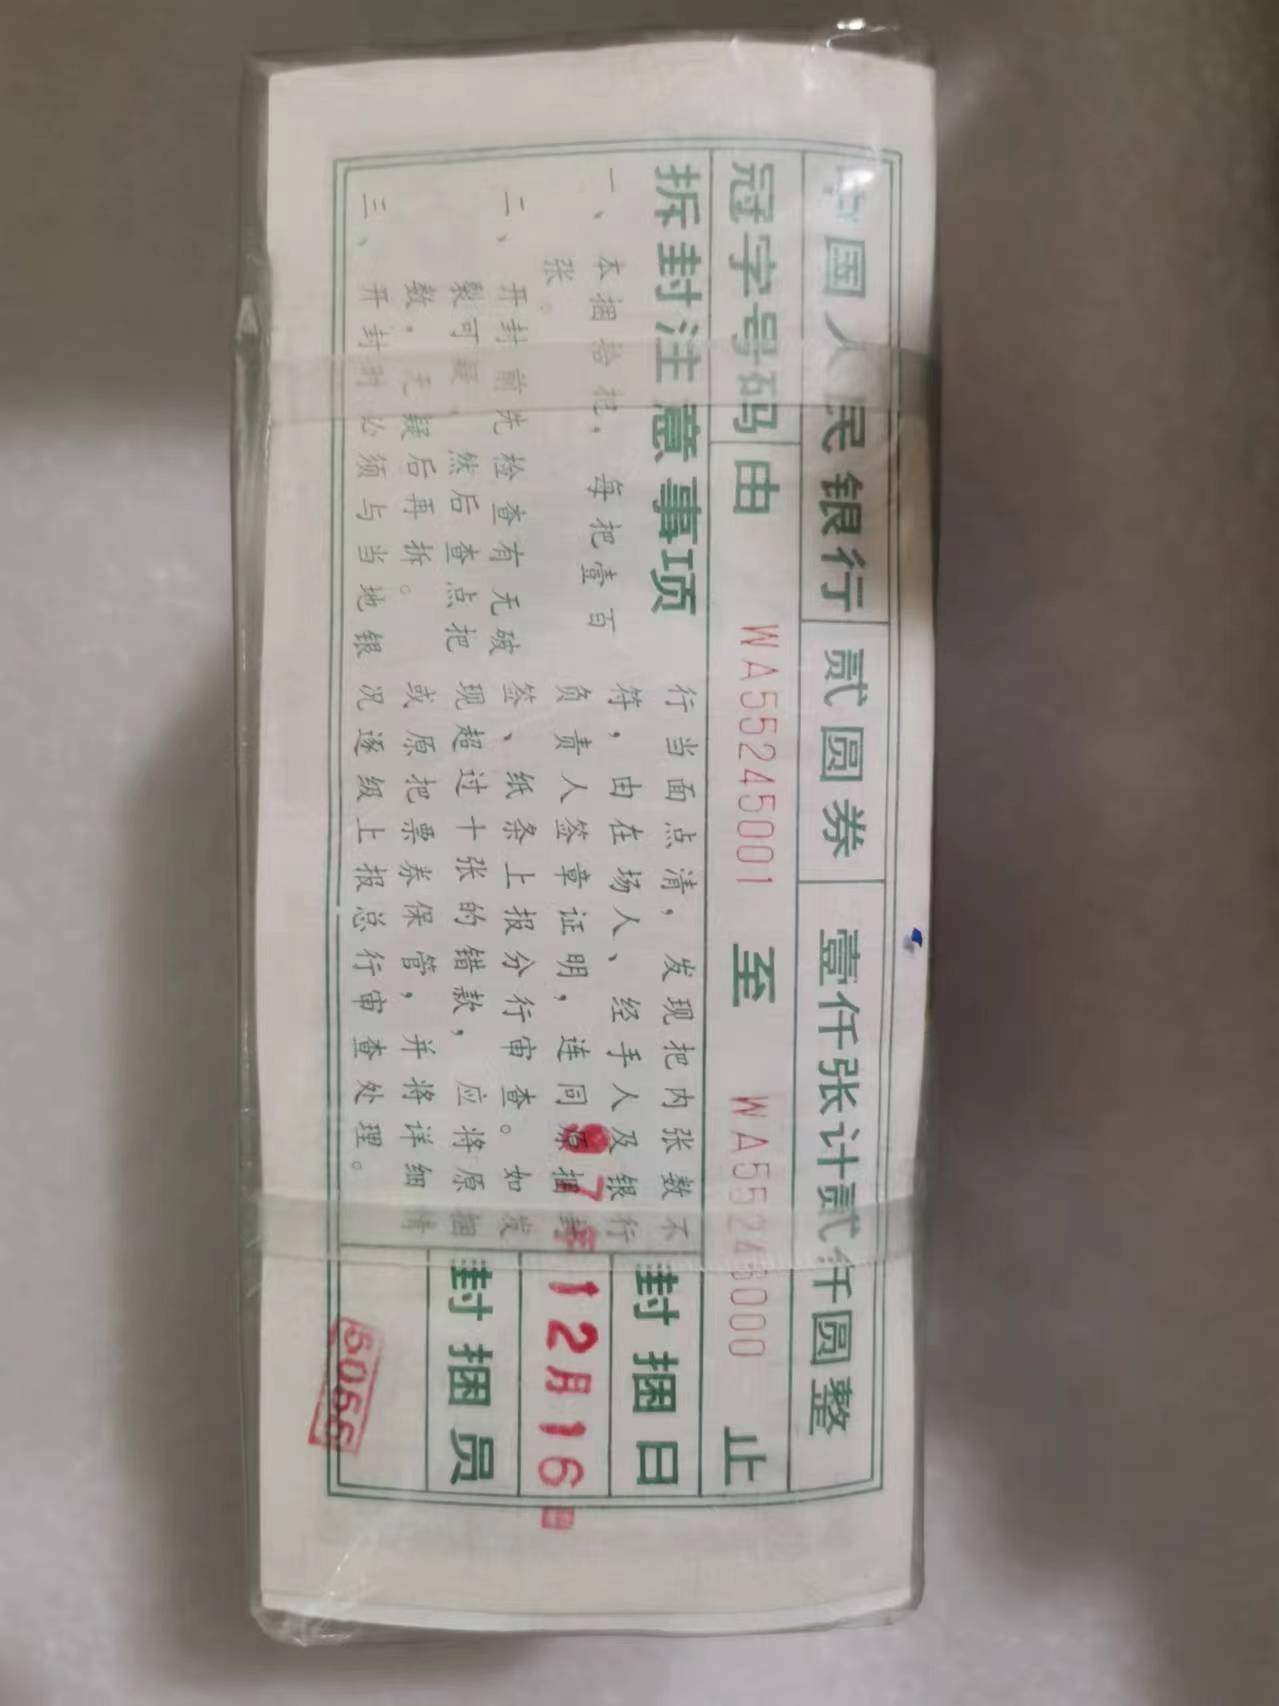 中国人民银行 贰圆券 壹仟张计贰仟圆整
冠字号码 由 WA55245001 至 WA55246000 止
拆封注意事项
一、本捆拾把，每把壹百
张。
二、开封前先检查有无破
裂可疑，然后查点把
数，无疑后再拆。
三、开封时必须与当地银
行当面点清，发现把内张数不
符，由在场人、经手人及银行
负责人签章证明，连同原捆封
签、纸条上报分行审查。如发
现超过十张的错款，应将原捆
或原把票券保管，并将详细情
况逐级上报总行审查处理。
封捆日
97年12月16日
封捆员
5066